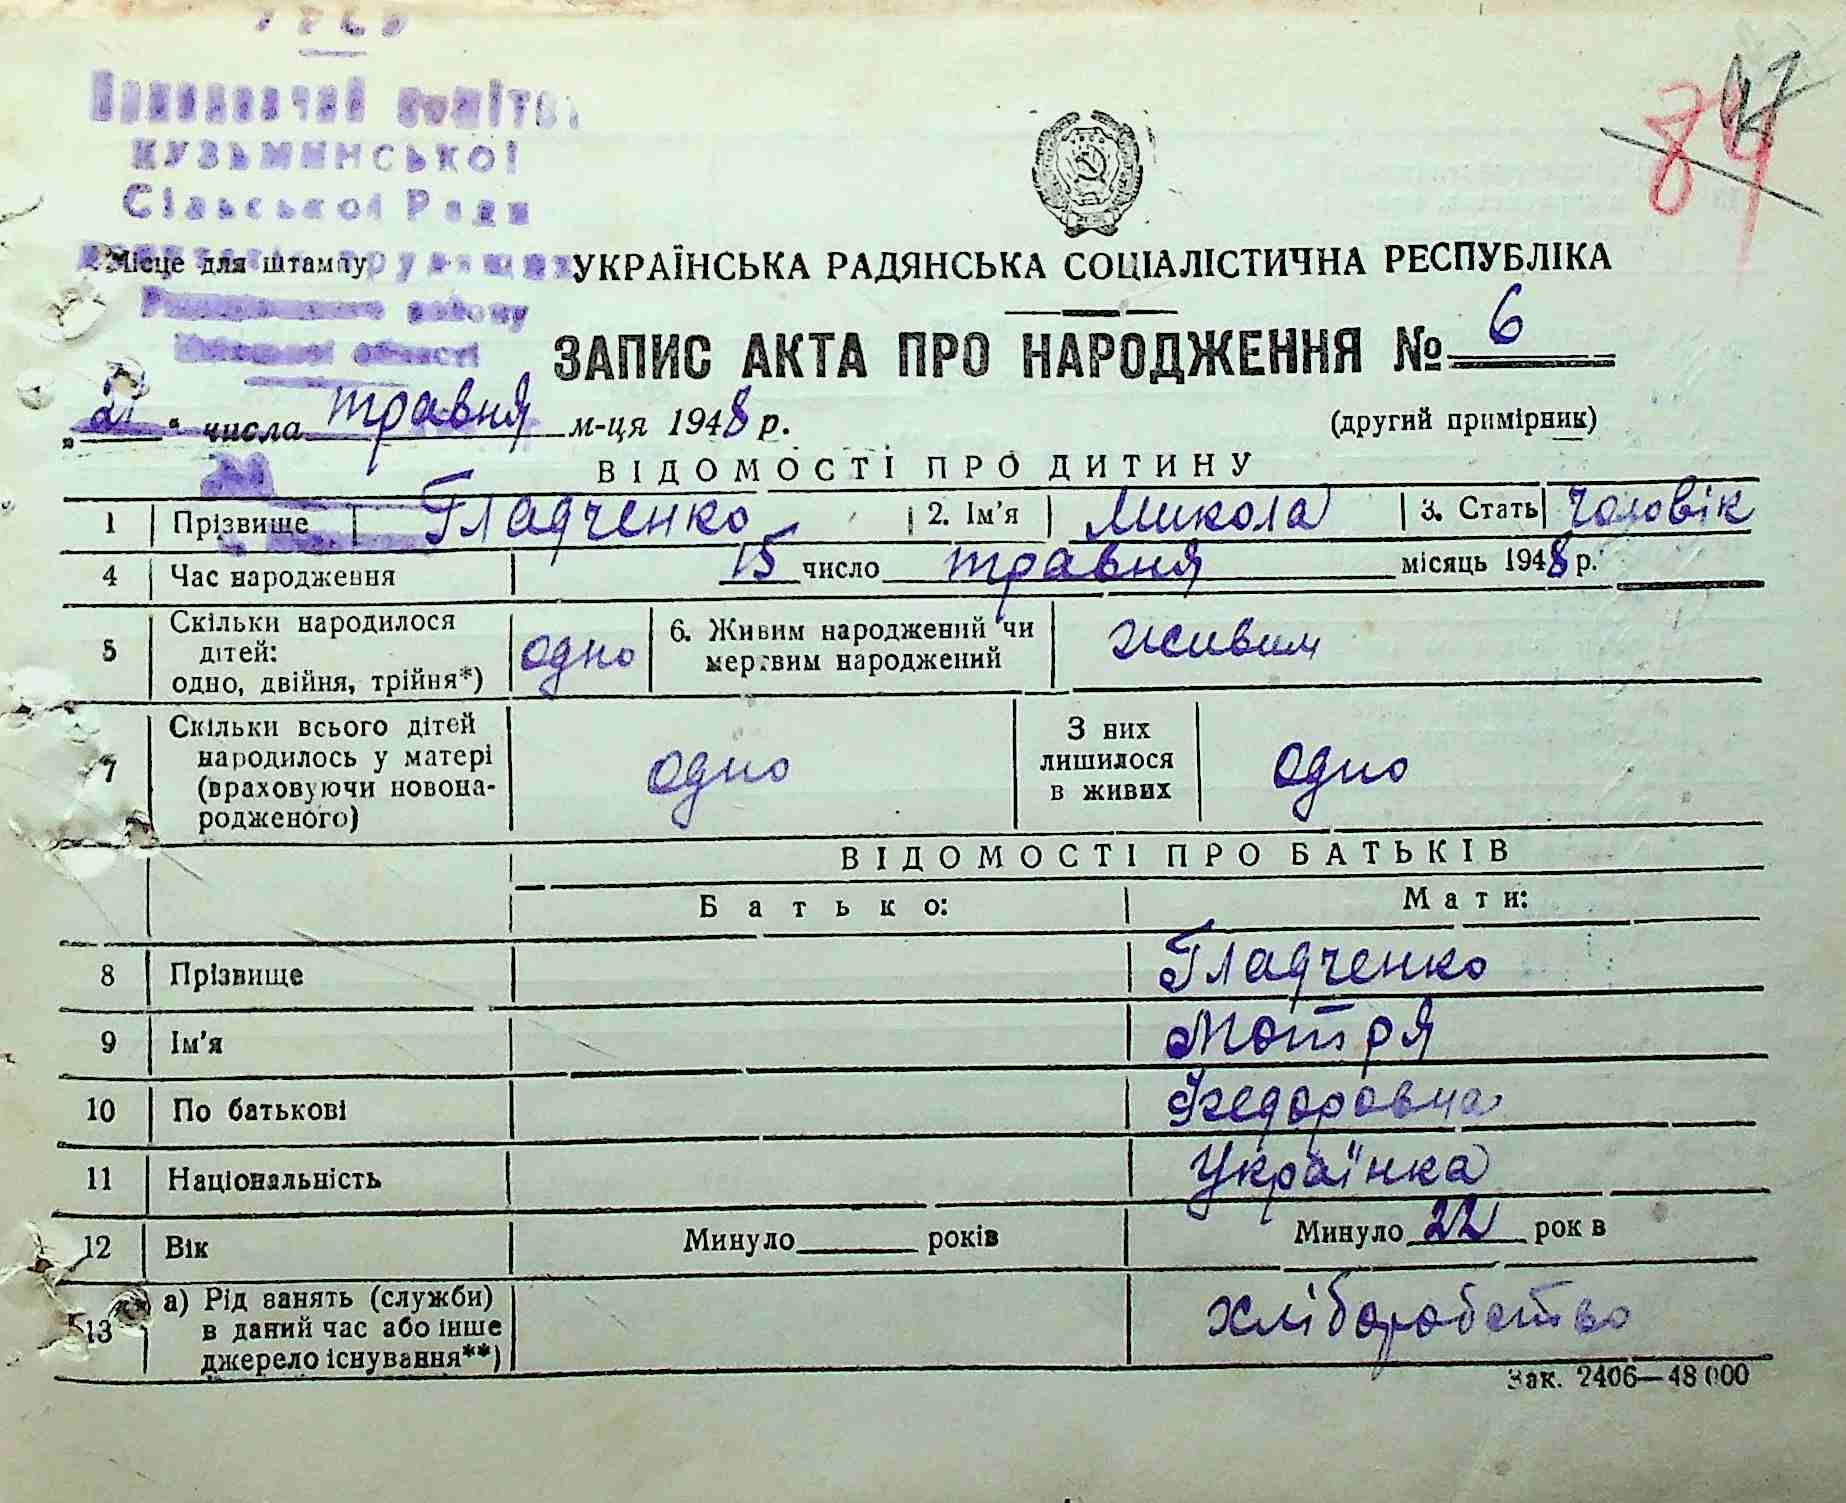 УРСР
Виконавчий комітет
КУЗЬМИНСЬКОЇ
Сільської Ради
Місце для штампу
району
області
84
47
УКРАЇНСЬКА РАДЯНСЬКА СОЦІАЛІСТИЧНА РЕСПУБЛІКА
ЗАПИС АКТА ПРО НАРОДЖЕННЯ № 6
„21“ числа травня м-ця 1948 р.
(другий примірник)
ВІДОМОСТІ ПРО ДИТИНУ
1 Прізвище Гладченко 2. Ім'я Микола 3. Стать чоловік
4 Час народження 15 число травня місяць 1948 р.
5 Скільки народилося дітей: одно, двійня, трійня*) одно 6. Живим народжений чи мертвим народжений живим
7 Скільки всього дітей народилось у матері (враховуючи новонародженого) одно З них лишилося в живих одно
ВІДОМОСТІ ПРО БАТЬКІВ
Батько: Мати:
8 Прізвище Гладченко
9 Ім'я Мотря
10 По батькові Федоровна
11 Національність Українка
12 Вік Минуло років Минуло 22 рок в
13 а) Рід занять (служби) в даний час або інше джерело існування**) хліборобство
Зак. 2406—48 000